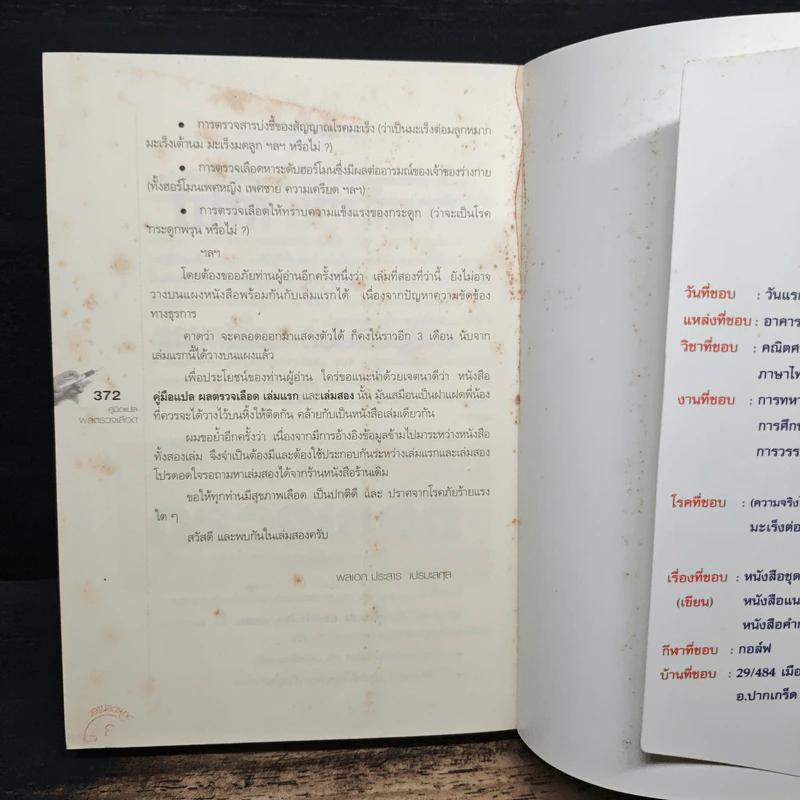 • การตรวจสารบ่งชี้ของสัญญาณโรคมะเร็ง (ว่าเป็นมะเร็งต่อมลูกหมาก
มะเร็งเต้านม มะเร็งมดลูก ฯลฯ หรือไม่ ?)
• การตรวจเลือดหาระดับฮอร์โมนซึ่งมีผลต่ออารมณ์ของเจ้าของร่างกาย
(ทั้งฮอร์โมนเพศหญิง เพศชาย ความเครียด ฯลฯ)
• การตรวจเลือดให้ทราบความแข็งแรงของกระดูก (ว่าจะเป็นโรค
กระดูกพรุน หรือไม่ ?)
ฯลฯ
โดยต้องขออภัยท่านผู้อ่านอีกครั้งหนึ่งว่า เล่มที่สองที่ว่านี้ ยังไม่อาจ
วางบนแผงหนังสือพร้อมกันกับเล่มแรกได้ เนื่องจากปัญหาความขัดข้อง
ทางธุรการ
คาดว่า จะคลอดออกมาแสดงตัวได้ ก็คงในราวอีก 3 เดือน นับจาก
เล่มแรกนี้ได้วางบนแผงแล้ว
เพื่อประโยชน์ของท่านผู้อ่าน ใคร่ขอแนะนำด้วยเจตนาดีว่า หนังสือ
คู่มือแปล ผลตรวจเลือด เล่มแรก และเล่มสอง นั้น มันเสมือนเป็นฝาแฝดพี่น้อง
ที่ควรจะได้วางไว้บนหิ้งให้ติดกัน คล้ายกับเป็นหนังสือเล่มเดียวกัน
ผมขอย้ำอีกครั้งว่า เนื่องจากมีการอ้างอิงข้อมูลข้ามไปมาระหว่างหนังสือ
ทั้งสองเล่ม จึงจำเป็นต้องมีและต้องใช้ประกอบกันระหว่างเล่มแรกและเล่มสอง
โปรดอดใจรอถามหาเล่มสองได้จากร้านหนังสือร้านเดิม
ขอให้ทุกท่านมีสุขภาพเลือด เป็นปกติดี และ ปราศจากโรคภัยร้ายแรง
ใด ๆ
สวัสดี และพบกันในเล่มสองครับ
พลเอก ประสาร เปรมะสกุล
372
คู่มือแปล
ผลตรวจเลือด
วันที่ชอบ : วันแรก
แหล่งที่ชอบ : อาคาร
วิชาที่ชอบ : คณิตศ
ภาษาไท
งานที่ชอบ : การทหา
การศึกษ
การวรร
โรคที่ชอบ : (ความจริงไ
มะเร็งต่อ
เรื่องที่ชอบ : หนังสือชุด
(เขียน) หนังสือแน
หนังสือคำก
กีฬาที่ชอบ : กอล์ฟ
บ้านที่ชอบ : 29/484 เมือ
อ.ปากเกร็ด